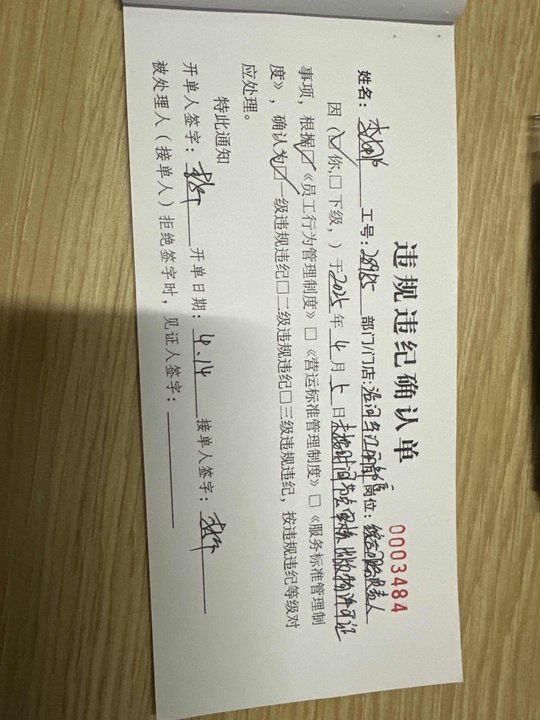 违规违纪确认单
0003484
姓名： 工号：28985 部门/门店：沿河乌江 岗位：综合服务负责人
因（☑你，□下级，）于2025年4月5日未按时间节点 出版物许可证
事项，根据☑《员工行为管理制度》□《营运标准管理制度》□《服务标准管理制
度》，确认为☑一级违规违纪□二级违规违纪□三级违规违纪，按违规违纪等级对
应处理。
特此通知
开单人签字： 开单日期：4.14 接单人签字：
被处理人（接单人）拒绝签字时，见证人签字：